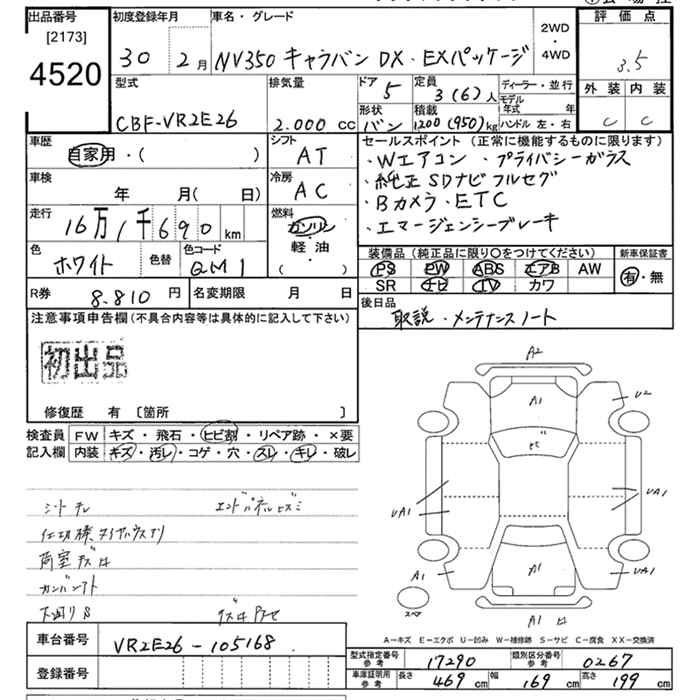 出品番号 [2173] 4520
初度登録年月 30 2月
車名・グレード NV350 キャラバン DX・EXパッケージ
2WD・4WD
評価点 3.5
型式 CBF-VR2E26
排気量 2.000 cc
ドア 5
定員 3(6)人
ディーラー・並行
モデル年式 年
形状 バン
積載 1200(950)kg
ハンドル 左・右
外装 C
内装 C
車歴 自家用・( )
シフト AT
車検 年 月(日)
冷房 AC
走行 16万1千690 km
燃料 ガソリン・軽・油 ( )
色 ホワイト
色替
色コード QM1
セールスポイント(正常に機能するものに限ります)
・Wエアコン ・プライバシーガラス
・純正SDナビフルセグ
・Bカメラ・ETC
・エマージェンシーブレーキ
装備品(純正品に限り○をつけてください)
PS PW ABS エアB AW
SR ナビ TV カワ
新車保証書 有・無
R券 8.810円
名変期限 月 日
後日品
取説・メンテナンスノート
注意事項申告欄(不具合内容等は具体的に記入して下さい)
初出品
修復歴 有 [箇所 ]
検査員記入欄
FW キズ・飛石・ヒビ割・リペア跡・×要
内装 キズ・汚レ・コゲ・穴・スレ・キレ・破レ
A2
A1
U2
ヒビ
UA1
UA1
A1
A1
UA1
スペア
A1
シートキレ エンドパネルヒズミ
下廻りS
A-キズ E-エクボ U-凹み W-補修跡 S-サビ C-腐食 XX-交換済
車台番号 VR2E26-105168
登録番号
型式指定番号 参考 17290
類別区分番号 参考 0267
車庫証明用 参考 長さ 469cm 幅 169cm 高さ 199cm